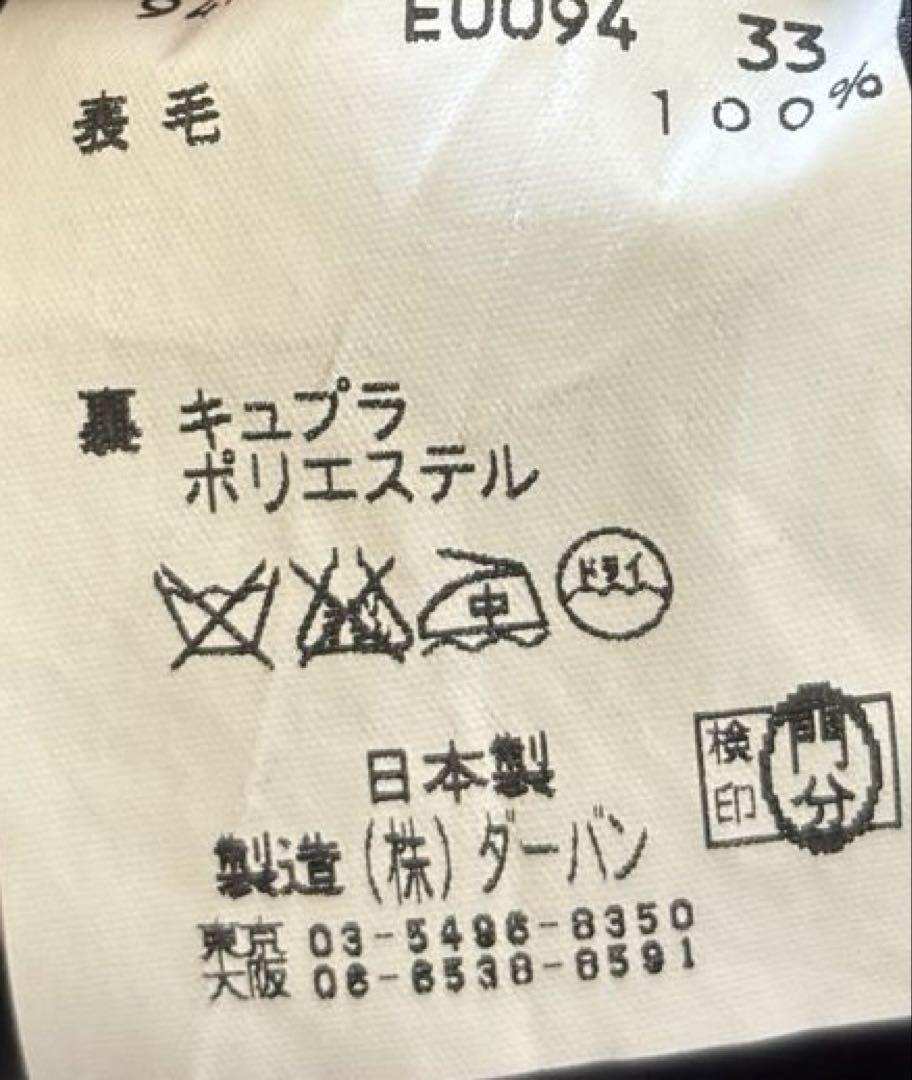 E0094
33
表 毛 100%
裏 キュプラ
ポリエステル
中
ドライ
検印
門分
日本製
製造(株)ダーバン
東京 03-5496-8350
大阪 06-6538-8591